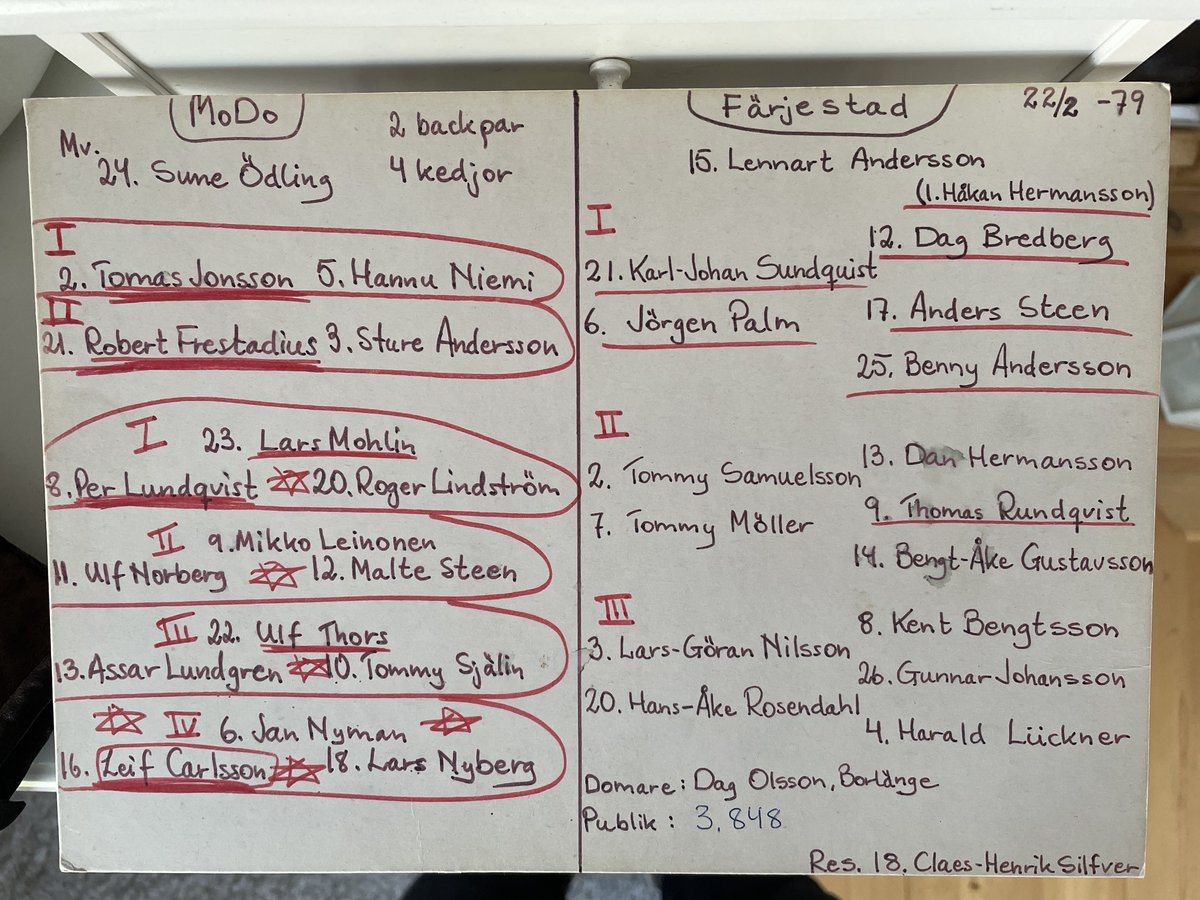 MoDo
2 backpar
Mv.
24. Sune Ödling
4 kedjor
I
2. Tomas Jonsson 5. Hannu Niemi
II
21. Robert Frestadius 3. Sture Andersson
I 23. Lars Mohlin
8. Per Lundqvist 20. Roger Lindström
II 9. Mikko Leinonen
11. Ulf Norberg 12. Malte Steen
III 22. Ulf Thors
13. Assar Lundgren 10. Tommy Själin
IV 6. Jan Nyman
16. Leif Carlsson 18. Lars Nyberg
Färjestad
22/2 -79
15. Lennart Andersson
(1. Håkan Hermansson)
I
12. Dag Bredberg
21. Karl-Johan Sundquist
17. Anders Steen
6. Jörgen Palm
25. Benny Andersson
II
13. Dan Hermansson
2. Tommy Samuelsson
9. Thomas Rundqvist
7. Tommy Möller
14. Bengt-Åke Gustavsson
III
8. Kent Bengtsson
3. Lars-Göran Nilsson
26. Gunnar Johansson
20. Hans-Åke Rosendahl
4. Harald Lückner
Domare: Dag Olsson, Borlänge
Publik: 3.848
Res. 18. Claes-Henrik Silfver